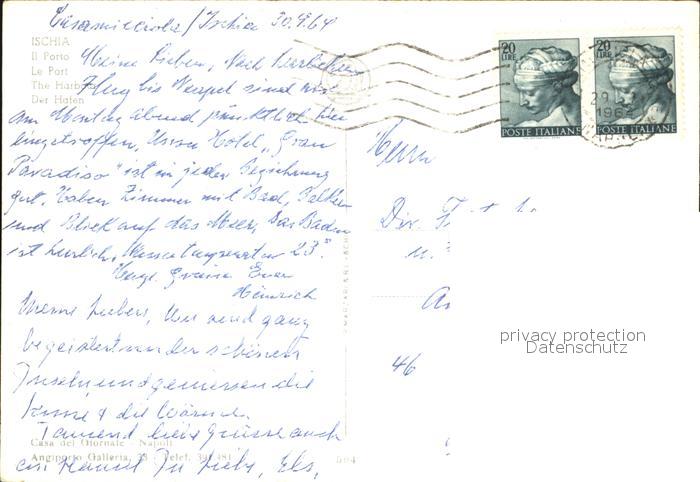 Casamicciola/Ischia 30.9.64
ISCHIA
Il Porto
Le Port
The Harbour
Der Hafen
Meine Lieben, Nach herrlichem
Flug bis Neapel sind wir
am Montag abend pünktlich hier
eingetroffen, Unser Hotel "Gran
Paradiso" ist in jeder Beziehung
gut. Haben Zimmer mit Bad, Balkon
und Blick auf das Meer, Das Baden
ist herrlich, Wassertemperatur 23°.
Herzl. Grüsse Euer
Heinrich
Meine Lieben, Wir sind ganz
begeistert von der schönen
Insel und geniessen die
Sonne & die Wärme.
Tausend liebe Grüsse auch
an
Casa del Giornale - Napoli
Angiporto Galleria, - Telef.
504
20
LIRE
POSTE ITALIANE
20
LIRE
POSTE ITALIANE
29
196
Herrn
Dir. F
u.
An
46
privacy protection
Datenschutz